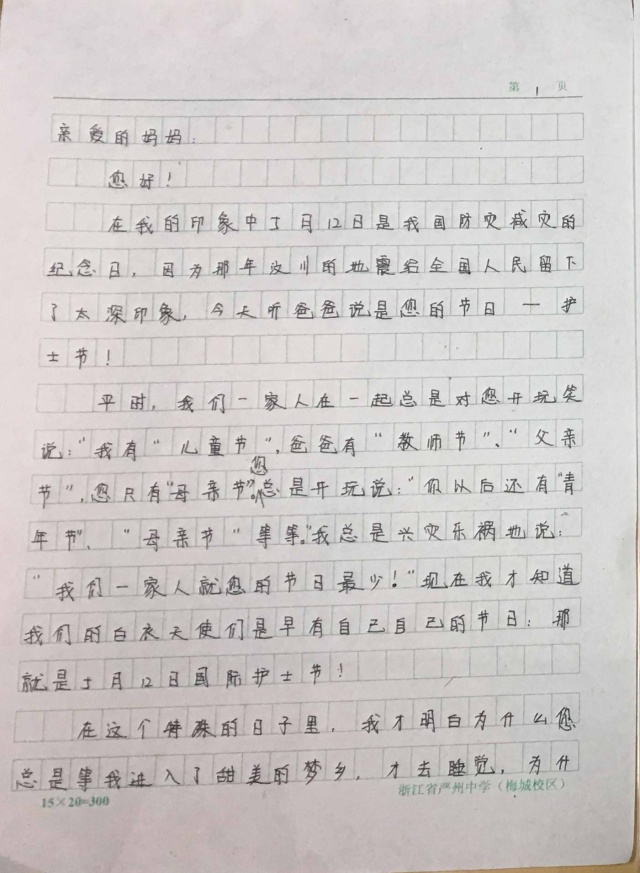 第 1 页
亲爱的妈妈：
您好！
在我的印象中5月12日是我国防灾减灾的
纪念日，因为那年汶川的地震给全国人民留下
了太深印象，今天听爸爸说是您的节日——护
士节！
平时，我们一家人在一起总是对您开玩笑
说："我有"儿童节"，爸爸有"教师节"、"父亲
节"，您只有"母亲节"。您总是开玩说："你以后还有"青
年节"、"母亲节"等等。"我总是兴灾乐祸地说：
"我们一家人就您的节日最少！"现在我才知道
我们的白衣天使们是早有自己自己的节日：那
就是5月12日国际护士节！
在这个特殊的日子里，我才明白为什么您
总是等我进入了甜美的梦乡，才去睡觉，为什
15×20=300 浙江省严州中学（梅城校区）